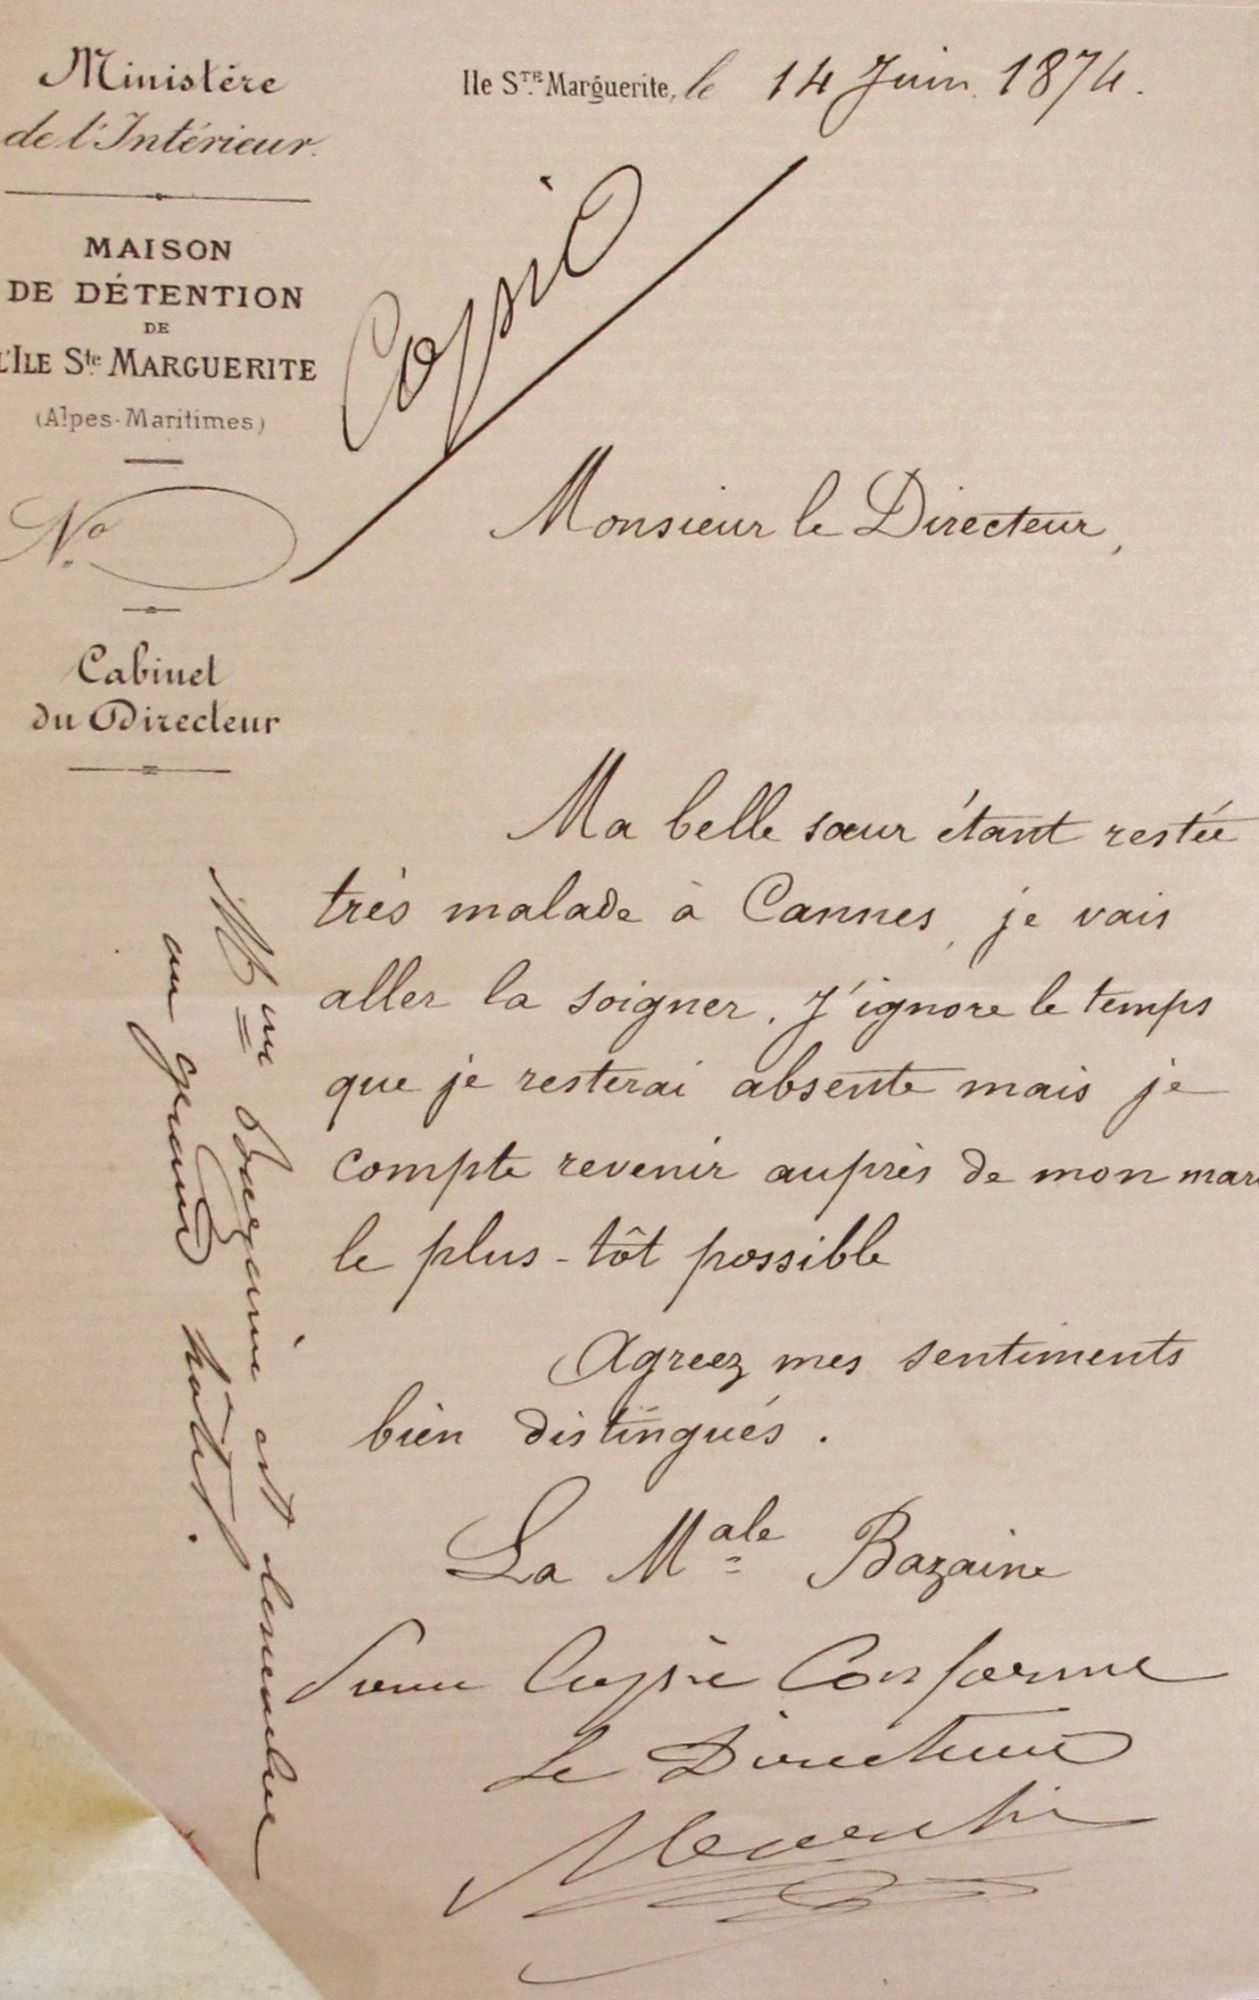 Ministère
de l'Intérieur.
MAISON
DE DÉTENTION
DE
L'ILE Ste MARGUERITE
(Alpes-Maritimes)
No.
Cabinet
du Directeur
Ile STE Marguerite, le 14 Juin 1874.
Copie
Monsieur le Directeur,
Ma belle sœur étant restée
très malade à Cannes, je vais
aller la soigner. J'ignore le temps
que je resterai absente mais je
compte revenir auprès de mon mari
le plus-tôt possible
Agreez mes sentiments
bien distingués.
La Male Bazaine
Pour Copie Conforme
Le Directeur
Mme Bazaine est descendue
au grand hôtel.